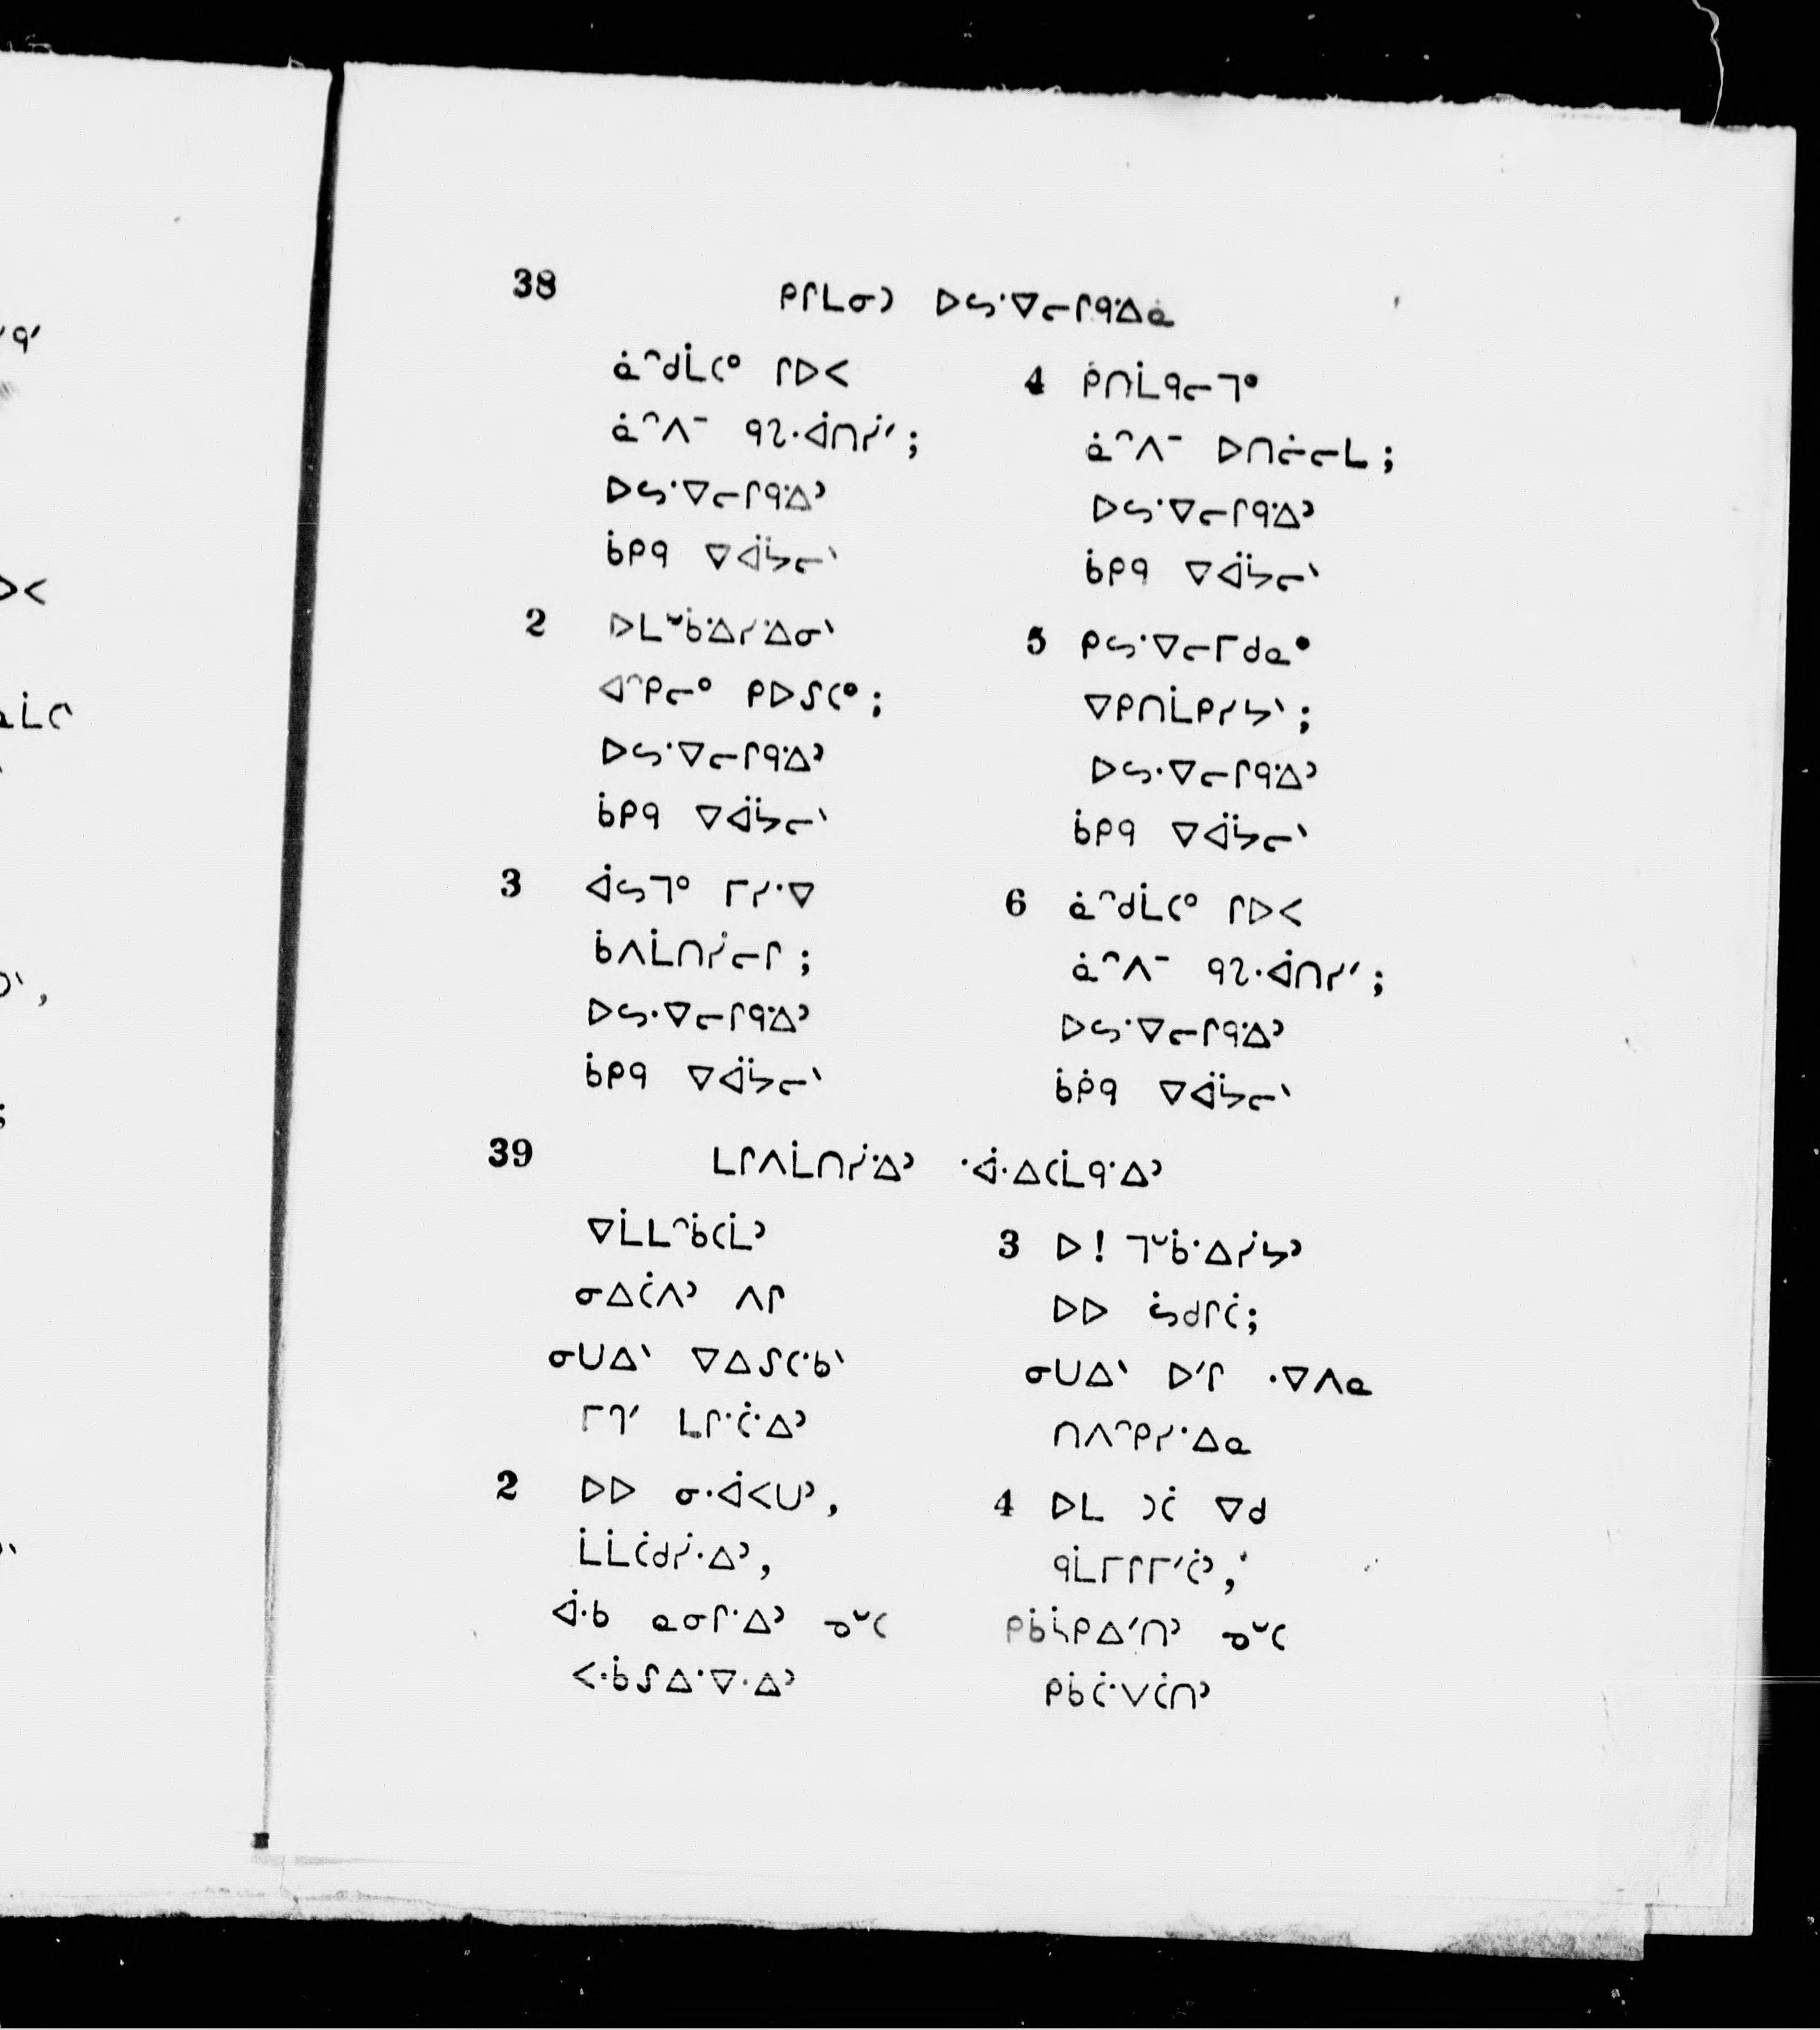 38 ᑭᒋᒪᓂᑐ ᐅᓴᐧᐁᓕᒋᑫᐧᐃᓇ
ᓈᐢᑯᒫᑕᐤ ᒋᐅᐸ
ᓈᐢᐱᐨ ᑫᔐᐧᐋᑎᓰᐟ;
ᐅᓴᐧᐁᓕᒋᑫᐧᐃᐣ
ᑳᑭᑫ ᐁᐚᔮᓕᐠ
2 ᐅᒪᐡᑲᐧᐃᓯᐧᐃᓂᐠ
ᐊᐢᑭᓕᐤ ᑭᐅᔑᑕᐤ;
ᐅᓴᐧᐁᓕᒋᑫᐧᐃᐣ
ᑳᑭᑫ ᐁᐚᔮᓕᐠ
3 ᐋᓴᒣᐤ ᒥᓯᐧᐁ
ᑳᐱᒫᑎᓰᓕᒋ;
ᐅᓴᐧᐁᓕᒋᑫᐧᐃᐣ
ᑳᑭᑫ ᐁᐚᔮᓕᐠ
4 ᑮᑎᒫᑫᓕᒣᐤ
ᓈᐢᐱᐨ ᐅᑎᓖᓕᒪ;
ᐅᓴᐧᐁᓕᒋᑫᐧᐃᐣ
ᑳᑭᑫ ᐁᐚᔮᓕᐠ
5 ᑭᓴᐧᐁᓕᒥᑯᓇᐤ
ᐁᑭᑎᒫᑭᓯᔭᐠ;
ᐅᓴᐧᐁᓕᒋᑫᐧᐃᐣ
ᑳᑭᑫ ᐁᐚᔮᓕᐠ
6 ᓈᐢᑯᒫᑕᐤ ᒋᐅᐸ
ᓈᐢᐱᐨ ᑫᔐᐧᐋᑎᓯᐟ;
ᐅᓴᐧᐁᓕᒋᑫᐧᐃᐣ
ᑳᑮᑫ ᐁᐚᔮᓕᐠ
39 ᒪᒋᐱᒫᑎᓰᐧᐃᐣ ᐧᐋᐧᐃᑕᒫᑫᐧᐃᐣ
ᐁᒫᒪᐢᑳᑕᒫᐣ
ᓂᐃᑖᐱᐣ ᐱᒋ
ᓂᑌᐃᐠ ᐁᐃᔑᑕᐧᑲᐠ
ᒥᒉᐟ ᒪᒋᐧᑖᐧᐃᐣ
2 ᐅᐅ ᓂᐧᐋᐸᑌᐣ,
ᒫᒫᑖᑯᓰᐧᐃᐣ,
ᐋᐧᑲ ᓇᓂᒋᐧᐃᐣ ᓀᐡᑕ
ᐸᐧᑳᔑᐃᐧᐁᐧᐃᐣ
3 ᐅ! ᒣᐡᑳᐧᐃᓰᔭᐣ
ᐅᐅ ᓵᑯᒋᑖ;
ᓂᑌᐃᐠ ᐅᐟᒋ ᐧᐁᐱᓇ
ᑎᐱᐢᑭᓯᐧᐃᓇ
4 ᐅᒪ ᑐᑖ ᐁᑯ
ᑫᒫᒥᒋᒥᐟᑖᐣ,
ᑭᑳᓵᑭᐃᐟᑎᐣ ᓀᐡᑕ
ᑭᑳᑖᐧᐯᑖᑎᐣ